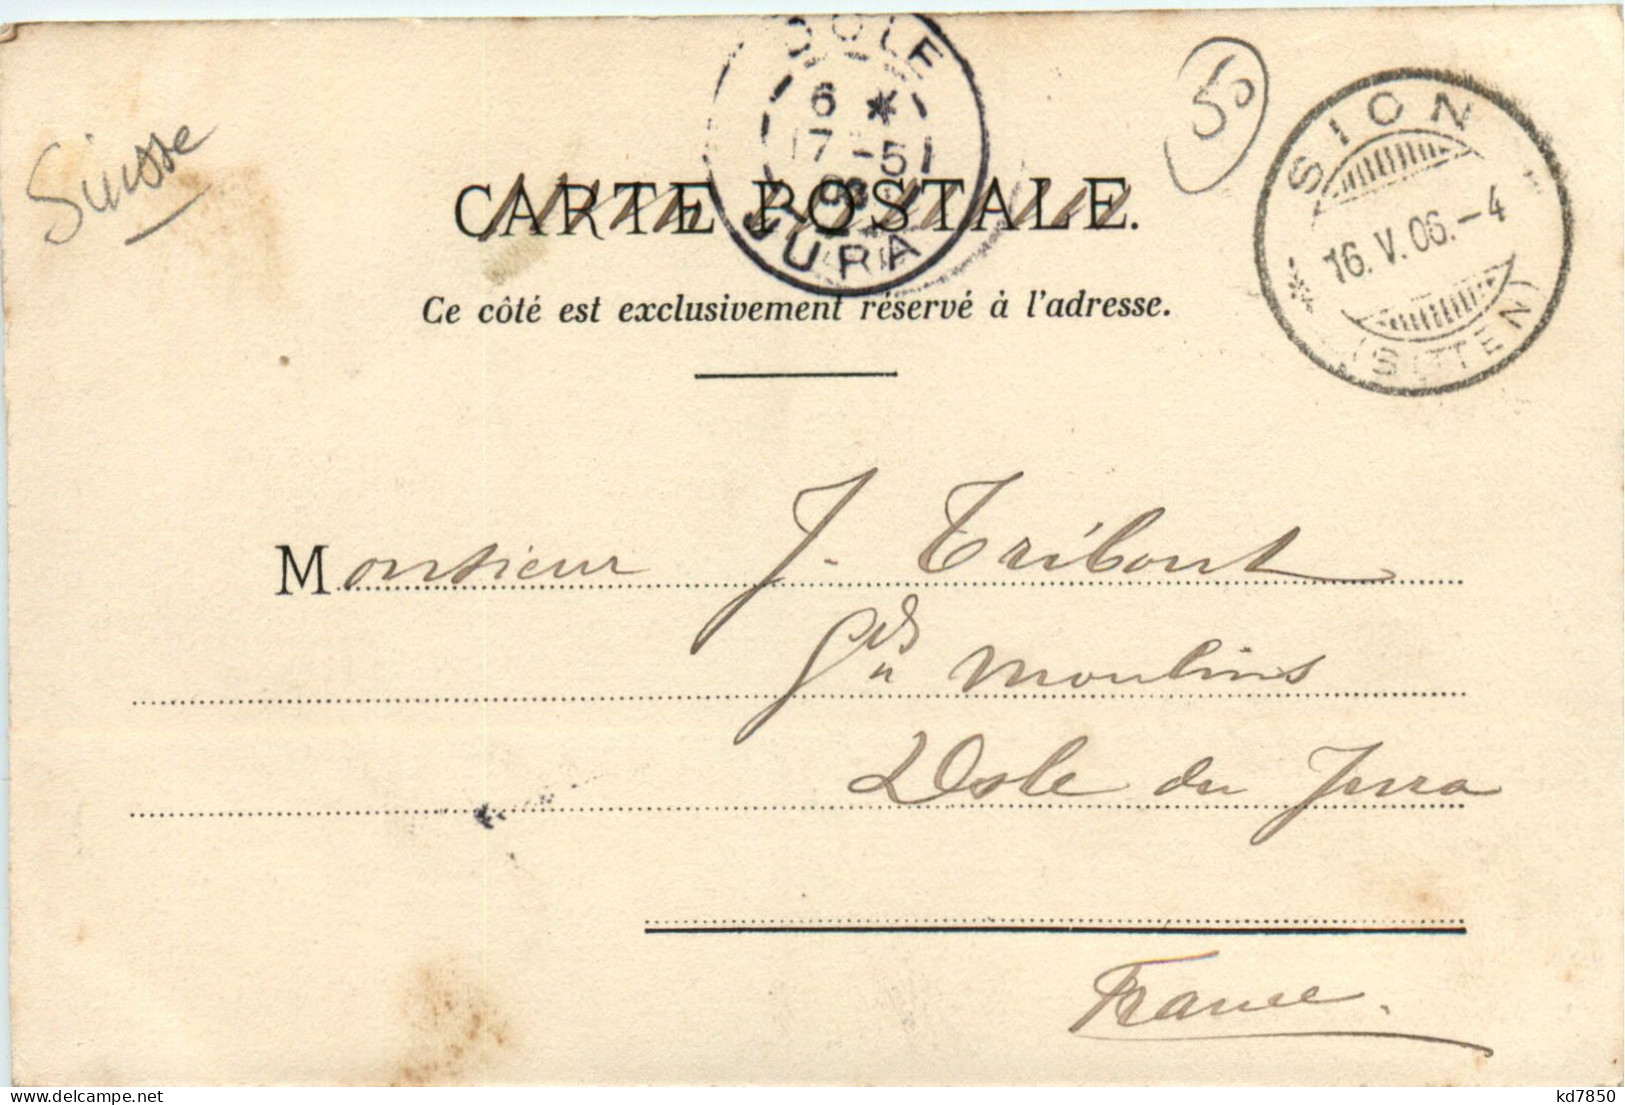 DOLE
6 *
17 -5
06
JURA
50
SION
16.V.06.-4
(SITTEN)
Suisse
CARTE POSTALE.
Ce côté est exclusivement réservé à l'adresse.
Monsieur J. Tribout
Gds Moulins
Dole du Jura
France.
kd7850